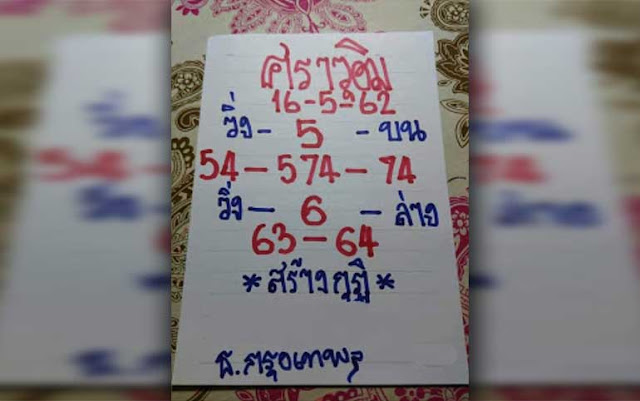 ศราวุฒิ
16-5-62
วิ่ง - 5 - บน
54 - 574 - 74
วิ่ง - 6 - ล่าง
63 - 64
*สร้างกุฏิ*
ธ.กรุงเทพฯ